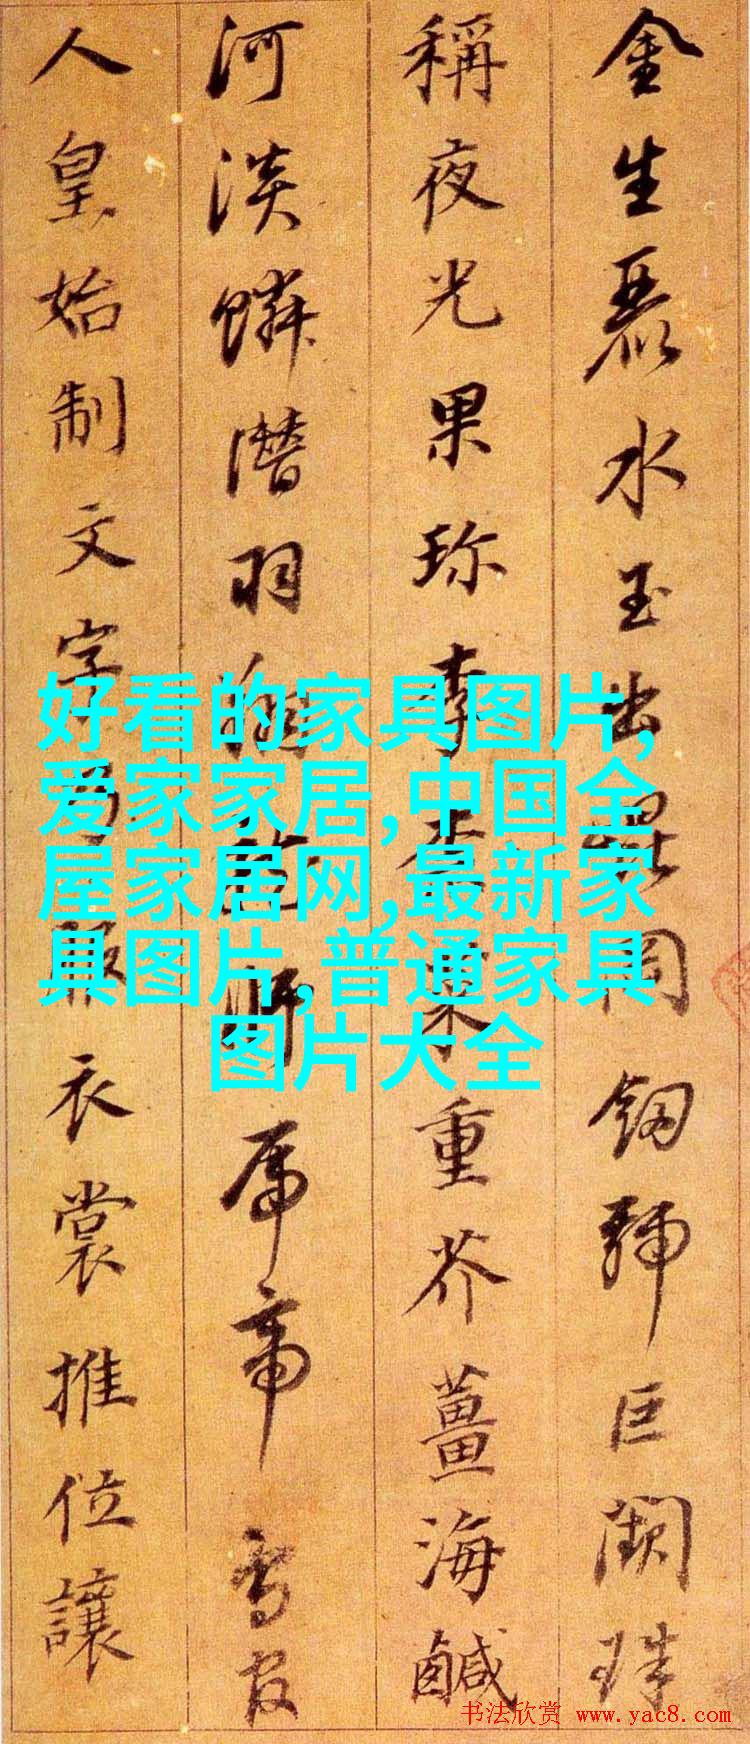 金生麗水玉出崑岡釼號巨闕珠
稱夜光果珎李柰菜重芥薑海鹹
河淡鱗潛羽翔龍師帝鳥官
人皇始制文字乃服衣裳推位讓
好看的家具图片,
爱家家居,中国全
屋家居网,最新家
具图片,普通家具
图片大全
书法欣赏 www.yac8.com